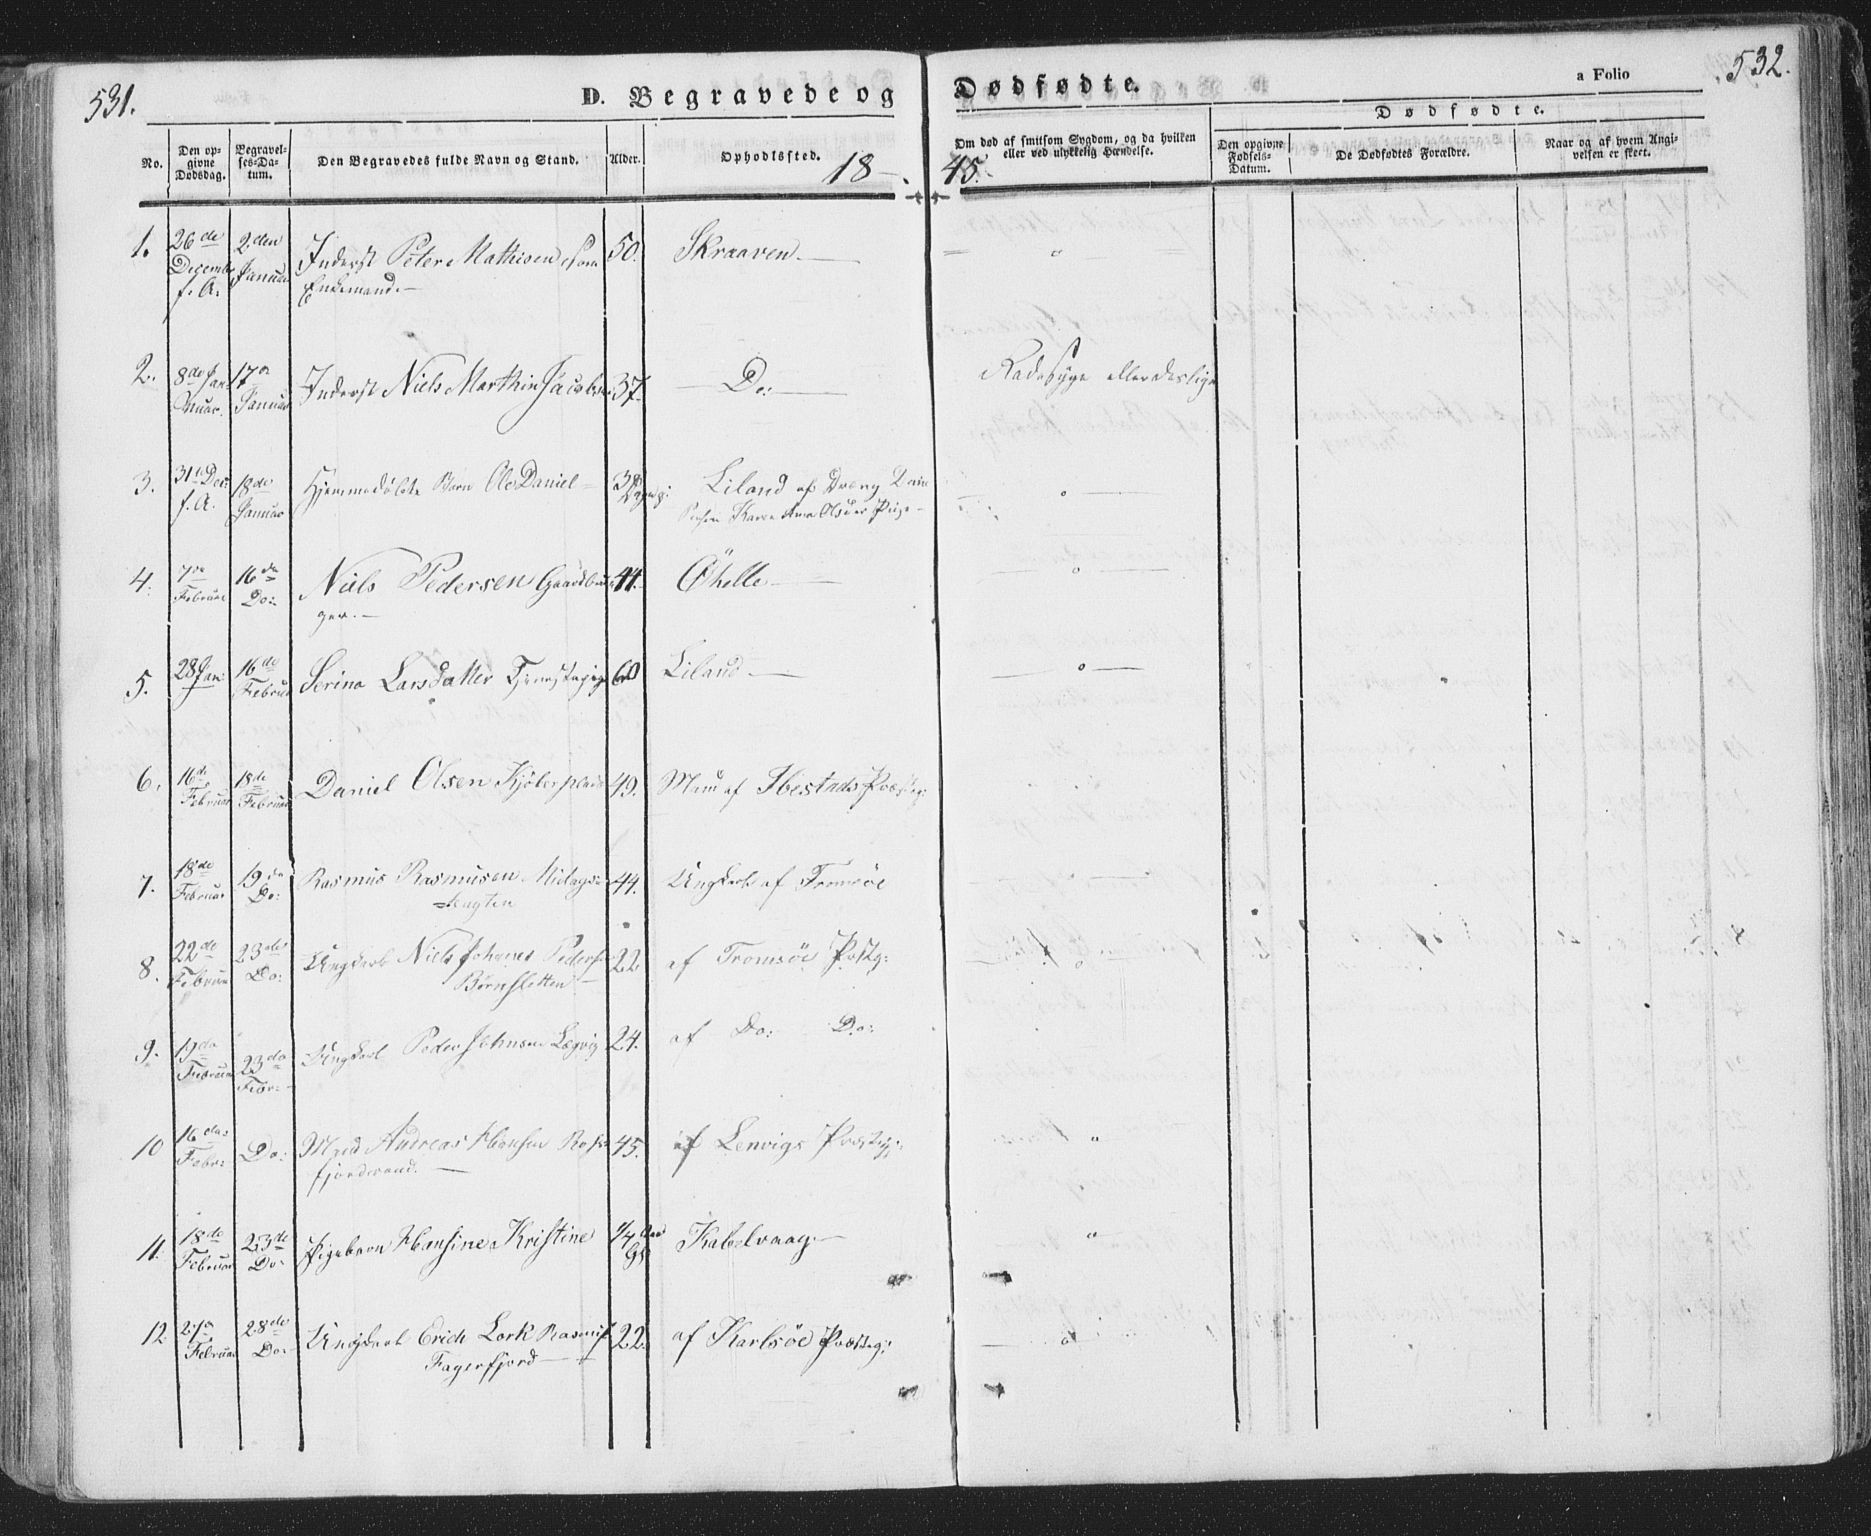 531.
D. Begravede og
Dødfødte.
a Folio
532.
No.
Den opgivne Dødsdag.
Begravelses-Datum.
Den Begravedes fulde Navn og Stand.
Alder.
Opholdssted.
Om død af smitsom Sygdom, og da hvilken
eller ved ulykkelig Hændelse.
Dødfødte.
Den opgivne Fødsels-Datum.
De Dødfødtes Forældre.
Naar og af hvem Angivelsen er skeet.
18 45.
1. 26de 2den Inderst Peter Mathisen 50. Skraaven.
Decemb Januar Enkemand.
f. A.
2. 8de Jan- 17de Inderst Niels Marthin Jacobsen 37. Do: Radesyge eller deslige
nuar. Januar
3. 31te Dec: 18de Hjemmedøbte Barn Ole Daniel 38 Liland af Dreng
f. A. Januar Dage Karen Anna Olsdr Pige
4. 7de 16de Niels Pedersen Gaardbru- 44. Øhelle
Februar Do: ger.
5. 28 Jan: 16de Serina Larsdatter Tjenestepige 60 Liland
Februar
6. 16de 18de Daniel Olsen 49. Mand af Ibestads Præsteg:
Februar Februar
7. 18de 19de Rasmus Rasmusen 44. Ungkarl af Tromsöe
Februar Do:
8. 22de 23de Ungkarl Niels Johannes Peders 22 af Tromsöe Præstg:
Februar Do:
9. 19de 23de Ungkarl Peder Johnsen 24. af Do: Do:
Februar Febr:
10 16de Do: Mand Andreas Hansen 45. af Lenvigs Præsteg:
Febr:
11. 18de 23de Pigebarn Hansine Kristine 1/4 Aar Kabelvaag
Februar Do: Gl
12 27de 28de Ungkarl Erich Lork Rasmus 22. af Karlsöe Præsteg:
Februar Do: Fagerfjord